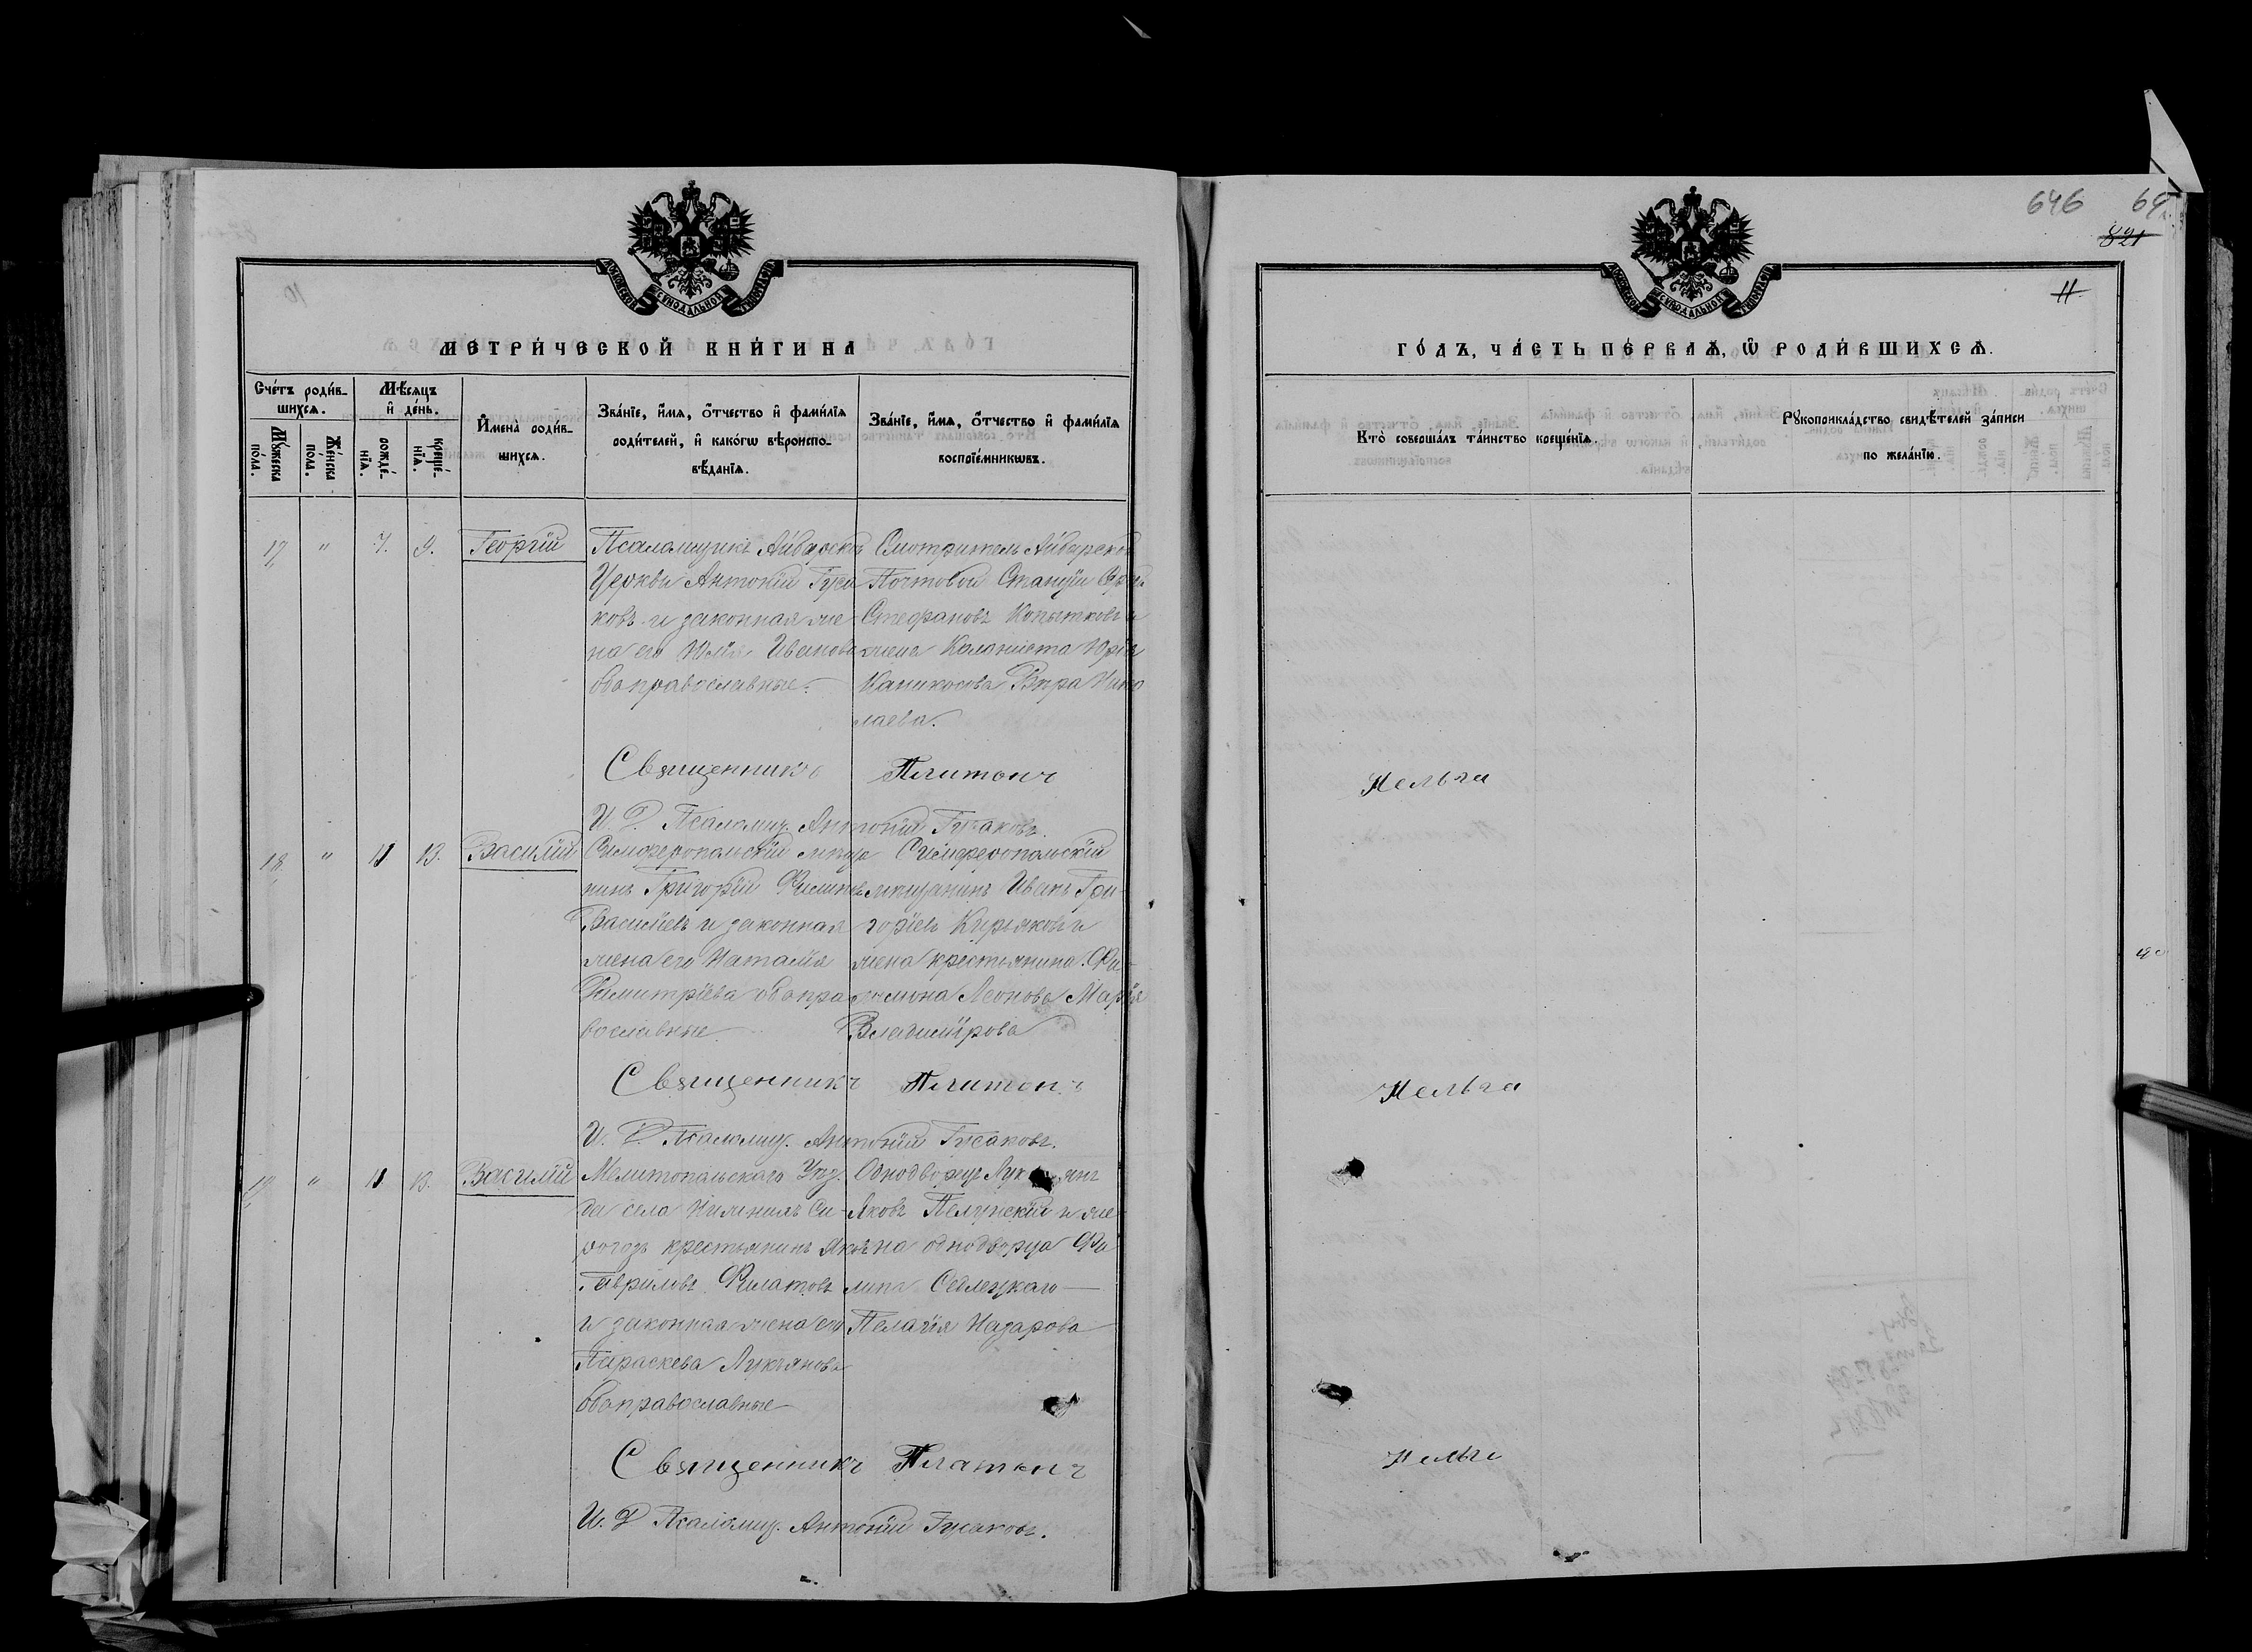 646 64
821
11
МОСКОВСКОЙ СѴНОДАЛЬНОЙ ТИПОГРАФІИ
МЕТРИ́ЧЕСКОЙ КНИ́ГИ НА
Сче́тъ роди́в-
шихсѧ.
Мꙋ́жеска по́ла.
Же́нска по́ла.
Мѣ́сѧцъ
и҆ де́нь.
рожде́-
нїѧ.
креще́-
нїѧ.
И҆мена̀ роди́в-
шихсѧ.
Зва́нїе, и҆́мѧ, ѻ҆́тчество и҆ фами́лїѧ
роди́телей, и҆ како́гѡ вѣроиспо-
вѣ́данїѧ.
Зва́нїе, и҆́мѧ, ѻ҆́тчество и҆ фами́лїѧ
воспрїе́мникѡвъ.
17 " 7. 9. Георгій
Псаломщикъ Айбарской
Церкви Антоній Гуса
ковъ и законная же
на его Юлія Иванова
оба православные.
Смотритель Айбарской
Почтовой Станціи
Стефановъ Копытковъ и
жена Колониста Юрія
Вѣра Нико
лаева.
Священникъ Платонъ
И. Д. Псаломщ. Антоній Гусаковъ.
18. " 11 13. Василій
Симферопольскій мѣща
нинъ Григорій Филиповъ
Васильевъ и законная
жена его Наталія
Димитріева оба пра
вославные.
Симферопольскій
мѣщанинъ Иванъ Гри-
горіевъ Кирьяковъ и
жена крестьянина Фи-
лимона Леонова Марія
Владимірова
Священникъ Платонъ
И. Д. Псаломщ. Антоній Гусаковъ.
19 " 11 13. Василій
Мелитопольскаго Уѣз.
да села Нижнихъ Сѣ-
рогозъ крестьянинъ Яковъ
Гавриловъ Филатовъ
и законная жена его
Параскева Лукьянова
оба православные
Однодворецъ Лукьянъ
Яковъ и же
на однодворца Фи
липа Седлецкаго
Пелагія Назарова
Священникъ Платонъ
И. Д. Псаломщ. Антоній Гусаковъ.
МОСКОВСКОЙ СѴНОДАЛЬНОЙ ТИПОГРАФІИ
ГО́ДЪ, ЧА́СТЬ ПЕ́РВАѦ, Ѡ҆ РОДИ́ВШИХСѦ.
Кто̀ соверша́лъ та́инство креще́нїѧ.
Рꙋкоприкла́дство свидѣ́телей за́писи
по жела́нїю.
Нельга
Нельга
Нельга